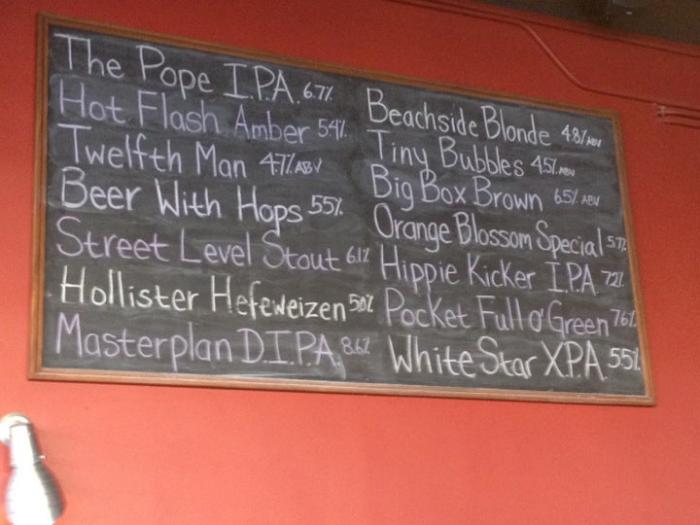 The Pope I.P.A. 6.7%
Hot Flash Amber 5.4%
Twelfth Man 4.7% ABV
Beer With Hops 5.5%
Street Level Stout 6.1%
Hollister Hefeweizen 5.0%
Masterplan D.I.P.A. 8.6%
Beachside Blonde 4.8% ABV
Tiny Bubbles 4.5% ABV
Big Box Brown 6.5% ABV
Orange Blossom Special 5.7%
Hippie Kicker I.P.A. 7.2%
Pocket Full o' Green 7.6%
White Star XPA 5.5%